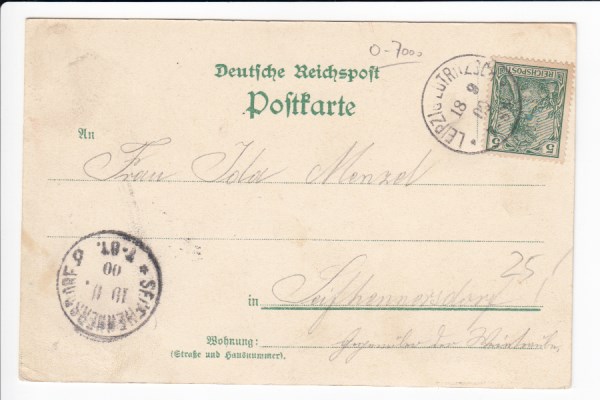 0-7000
Deutsche Reichspost
Postkarte
LEIPZIG-EUTRITZSCH
18 9 00
REICHSPOST
5 5
An
Frau Ida Menzel
SEIFHENNERSDORF
7-8T.
00
19 9.
25!
in Seifhennersdorf
Wohnung: Gegenüber der
(Straße und Hausnummer).